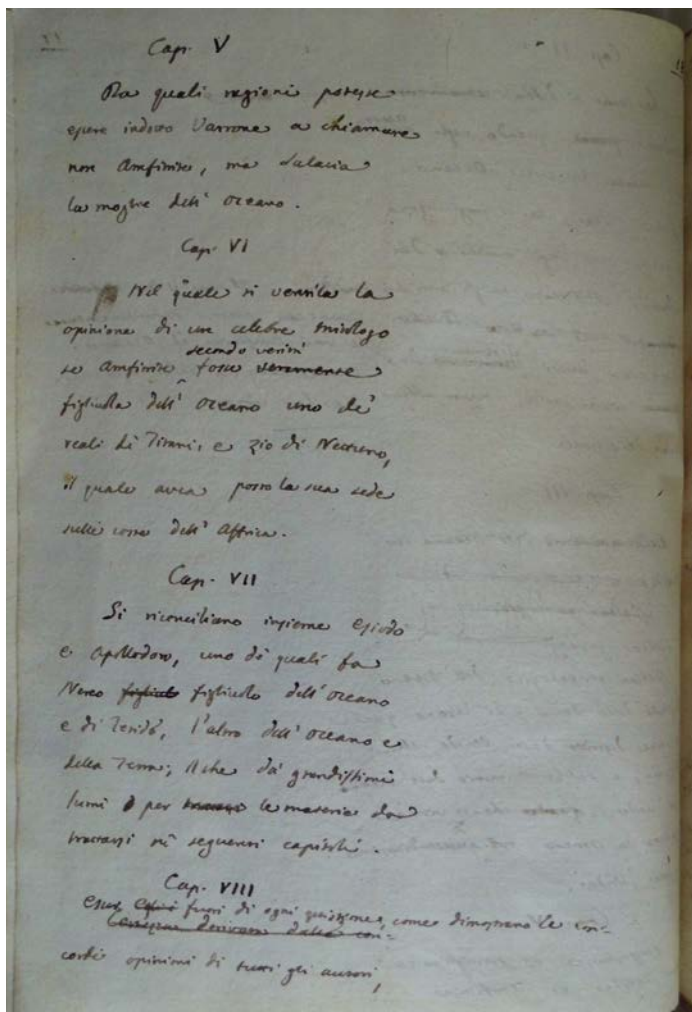 Cap. V
Da quali ragioni potesse
essere indotto Varrone a chiamare
non Amfitrite, ma Salacia
la moglie dell' Oceano.
Cap. VI
Nel quale si ventila la
opinione di un celebre mitologo
secondo verità
se Amfitrite fosse veramente
figliuola dell' Oceano uno de'
reali di Titani, e zio di Nettuno,
il quale avea posto la sua sede
sulle coste dell' Affrica.
Cap. VII
Si riconciliano insieme Esiodo
e Apollodoro, uno de quali fa
Nereo figliuol figliuolo dell' Oceano
e di Teride, l'altro dell' Oceano e
della Terra; il che dà grandissimi
lumi per le materie da
trattarsi ne' seguenti capitoli.
Cap. VIII
fuori di ogni quistione, come dimostrano le con-
derivare dalle con-
cordi opinioni di tutti gli autori,